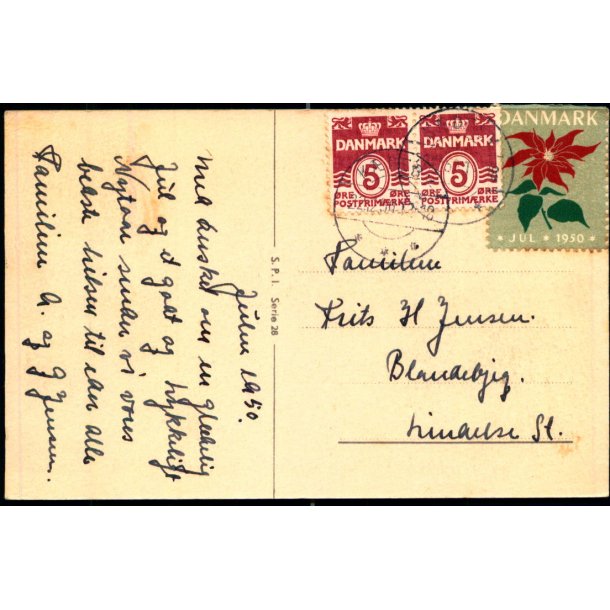 Julen 1950.
Med ønsket om en glædelig
Jul og et godt og lykkeligt
Nytaar sender vi vores
bedste hilsen til eder alle
Familien A. og G Jensen.
S. P. I. Serie 28
DANMARK
5
ØRE ØRE
POSTFRIMÆRKE
DANMARK
5
ØRE ØRE
POSTFRIMÆRKE
DANMARK
* JUL * 1950 *
Familien
Frits H Jensen.
Blandebjeg.
Lindelse St.